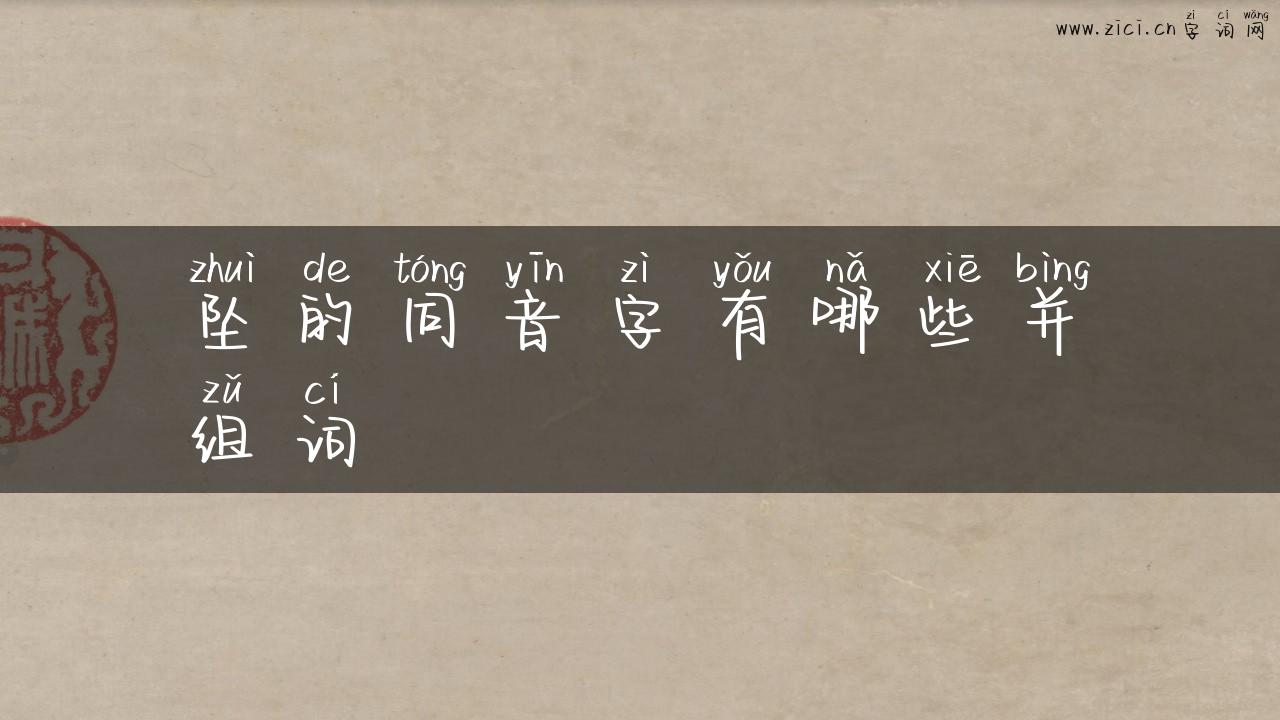 zì cí wǎng
www.zici.cn 字词网
zhuì de tóng yīn zì yǒu nǎ xiē bìng
坠的同音字有哪些并
zǔ cí
组词